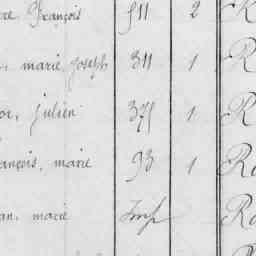 re François 511 2 R
, marie Joseph 311 1 R
or, julien 375 1 R
ançois, marie 93 1 Ro
an, marie Imp Ro